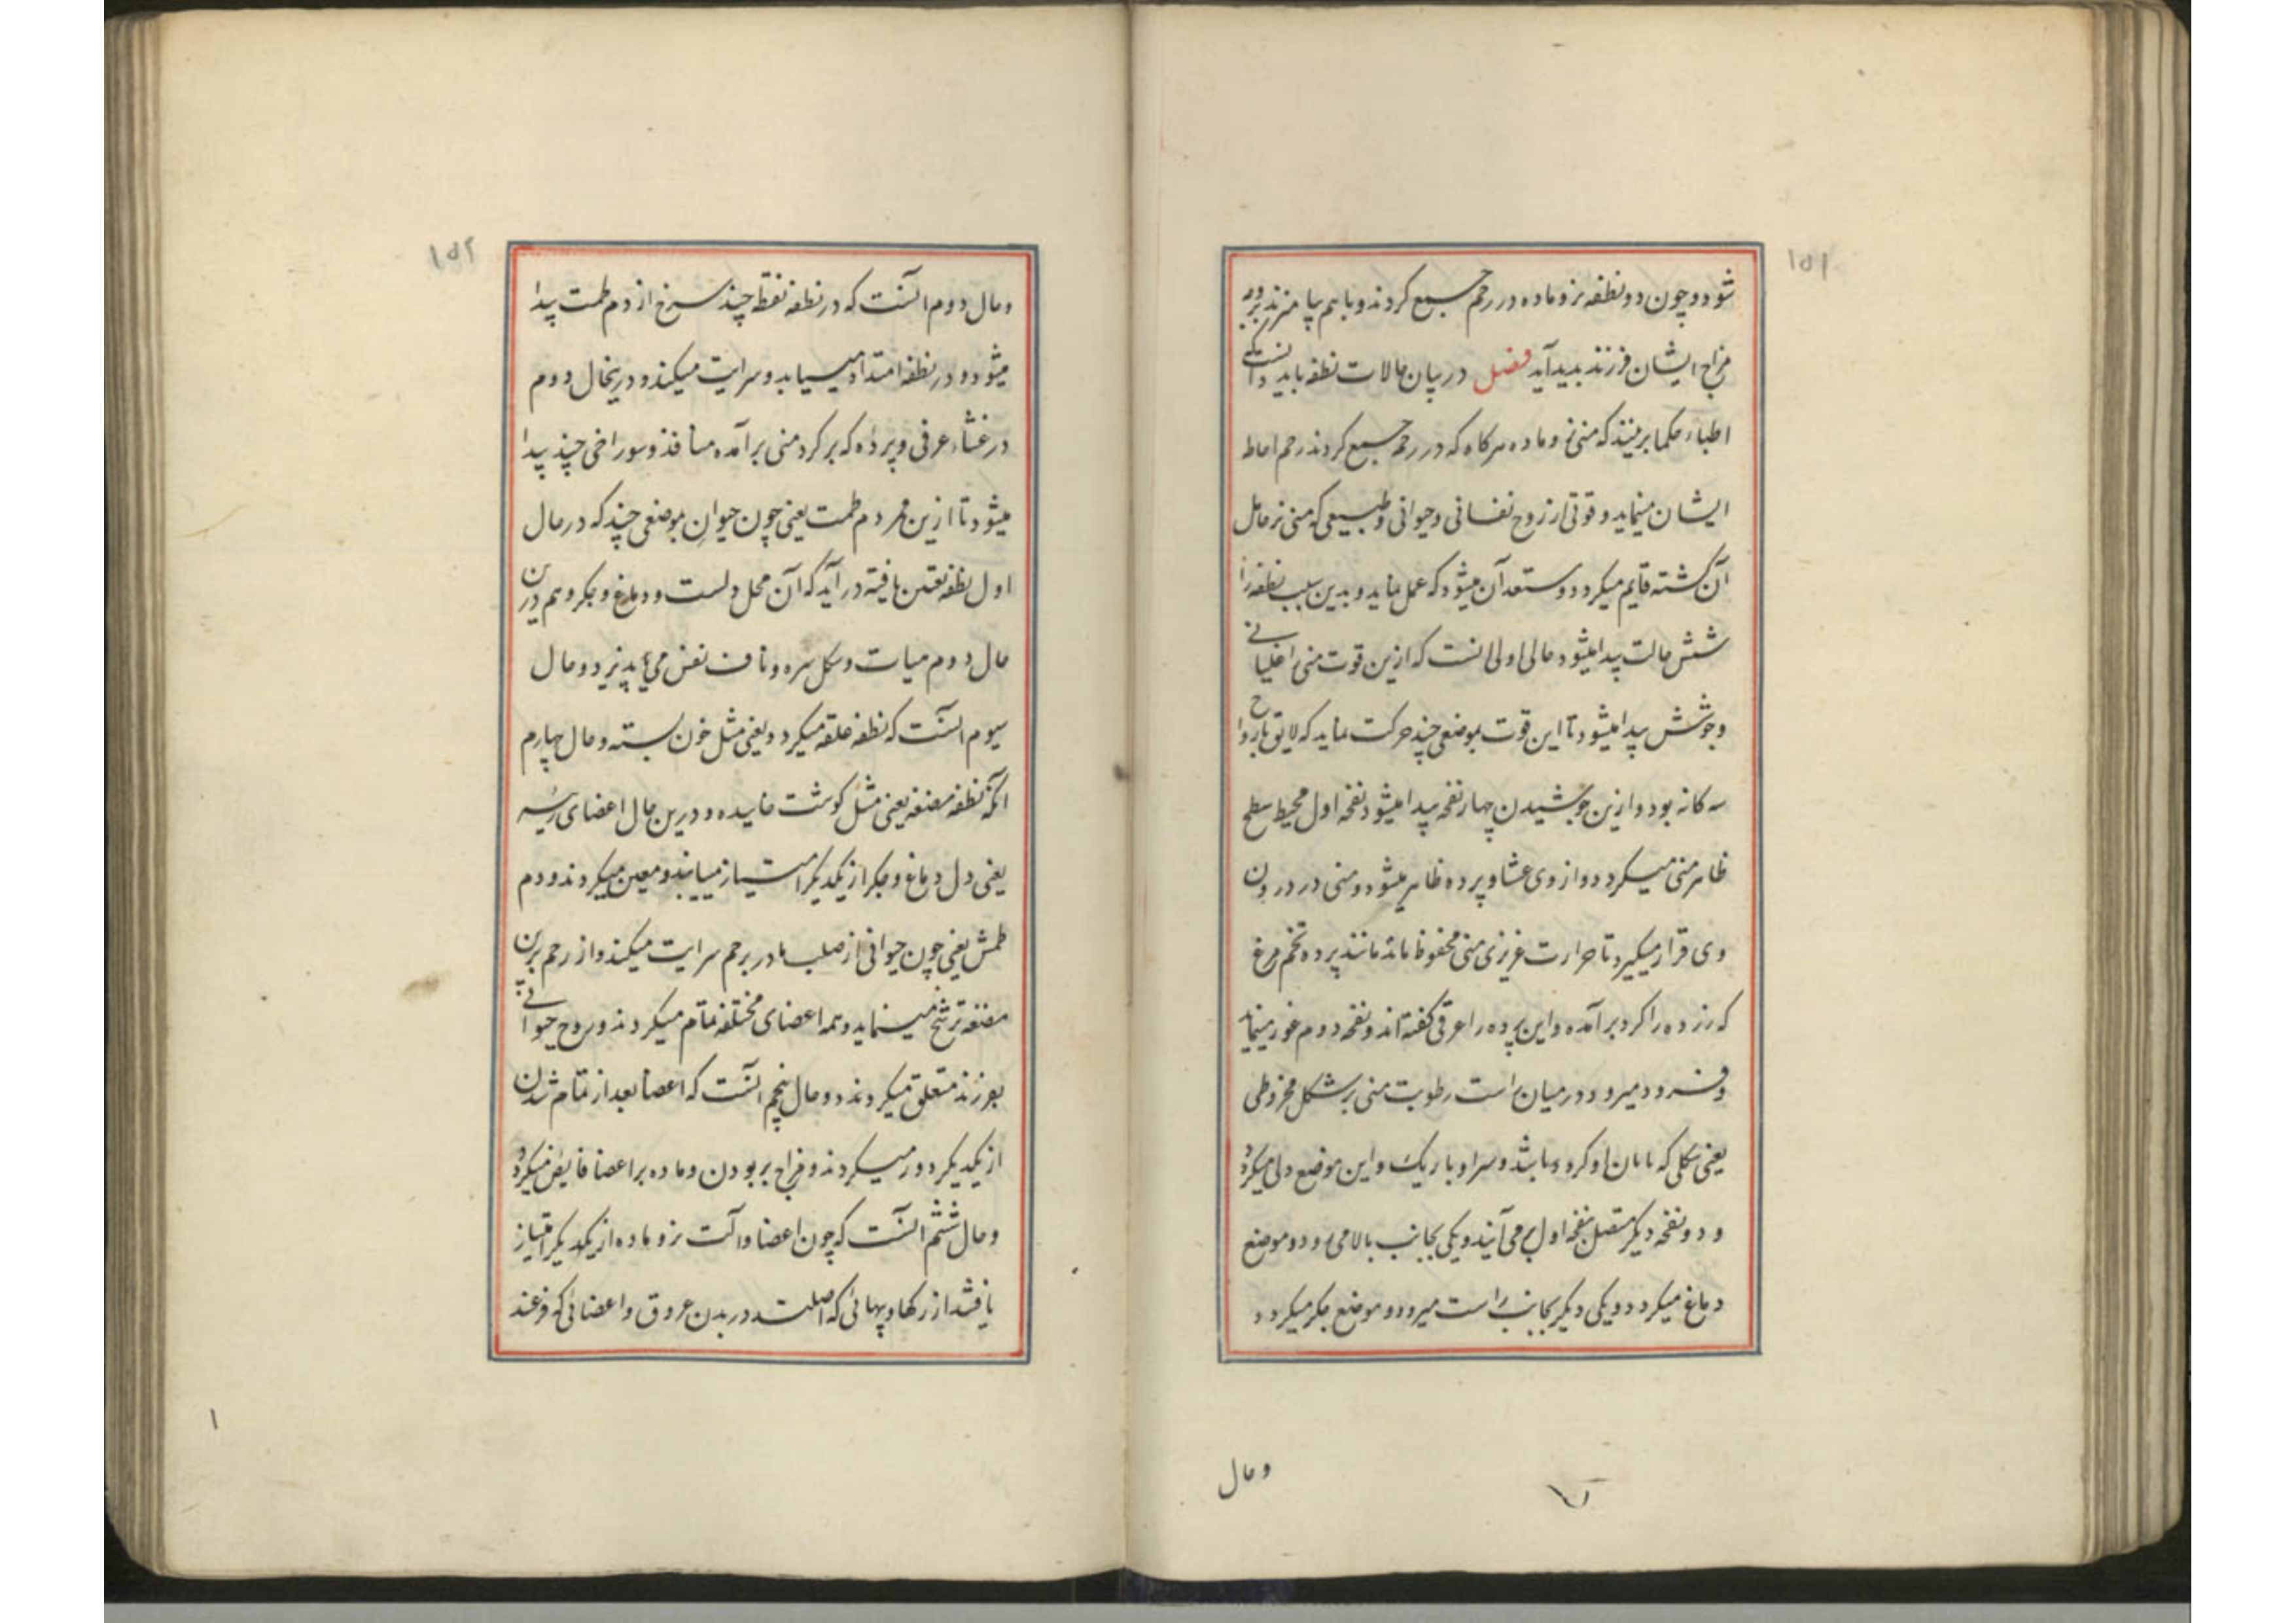 ۱۵۱
شود و چون دو نطفه نر و ماده در رحم جمع کردند و باهم بیامیزند بر
مزاج ایشان فرزند بدید آید فصل در بیان حالات نطفه باید دانست که
اطباء حکما برینند که منی نر و ماده هرکاه که در رحم جمع کردند رحم احاطه
ایشان مینماید و قوتی از روح نفسانی و حیوانی و طبیعی که منی نر حامل
آن کشته قایم میکردد و مستعد آن میشود که عمل نماید و بدین سبب نطفه را
شش حالت پیدا میشود حالی اولی انست که ازین قوت منی را غلیانی
و جوشش پیدا میشود تا این قوت بموضعی چند حرکت نماید که لایق بارواح
سه کانه بود و ازین جوشیدن چهار نفخه پیدا میشود نفخه اول محیط سطح
ظاهر منی میکردد و از وی غشا و پرده ظاهر میشود و منی در درون
وی قرار میکیرد تا حرارت غریزی منی محفوظ ماند مانند پرده تخم مرغ
که زرده را کرد برآمده و این پرده را عرقی کفته اند و نفخه دوم غور مینماید
و فرود میرود در میان است رطوبت منی بر شکل مخروطی
یعنی شکلی که پایان او کرد باشد و سر او باریک و این موضع دلی میکردد
و دو نفخه دیکر متصل نفخه اول برمی آیند و یکی بجانب بالا می رود و موضع
دماغ میکردد و یکی دیکر بجانب راست میرود و موضع جکر میکردد
وحال
۱۵۲
وحال دوم آنست که در نطفه نقطه چند سرخ از دم طمث پیدا
میشود و در نطفه امتداد میسیابد و سرایت میکند و درینحال دوم
در غشاء عرقی و پرده که بر کرد منی برآمده منافذ و سوراخی چند پیدا
میشود تا ازین ممر دم طمث یعنی چون حیوان بموضعی چند که در حال
اول نطفه تعین یافته در آید که آن محل دلست و دماغ و جکر و هم درین
حال دوم میات و شکل سره و ناف نقش می پذیرد و حال
سیوم آنست که نطفه علقه میکردد یعنی مثل خون بسته و حال چهارم
آنکه نطفه مضغه یعنی مثل کوشت خاییده و درین حال اعضای رئیسه
یعنی دل و دماغ و جکر از یکدیکر امتیاز مییابند و معین میکردند و دم
طمث یعنی چون حیوانی از صلب مادر برحم سرایت میکند و از رحم برین
مضغه ترشح مینماید و همه اعضای مختلفه تمام میکردند و روح حیوانی
بفرزند متعلق میکردند و حال پنجم آنست که اعضا بعد از تمام شدن
از یکدیکر دور میکردند و مزاج بربودن و ماده بر اعضا فایض میکردد
و حال ششم آنست که چون اعضا و آلت نر و ماده از یکدیکر امتیاز
یافتند از رکها و پیهائی که اصلت در بدن عروق و اعضائی که فرعند
۱